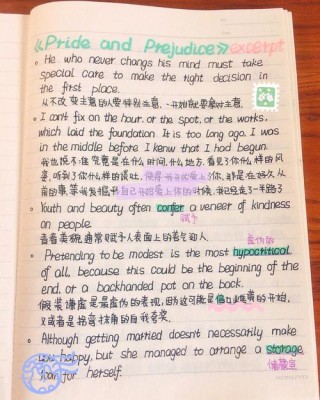 《Pride and Prejudice》excerpt
He who never changs his mind must take
special care to make the right decision in
the first place.
从不改变主意的人要特别注意,一开始就要拿对主意。
I can't fix on the hour. or the spot, or the works,
which laid the foundation. It is too long ago. I was
in the middle before I kenw that I hod begun.
我也说不准究竟是在什么时间,什么地方,看见了你什么样的风
姿,听到了你什么样的谈吐,便使我开始爱上了你,那是在好久以
前的事,等我发现我自己开始爱上你的时候,我已经走了一半路了
Youth and beauty often confer a veneer of kindness
on people.
赋予
青春美貌通常赋予人表面上的
虚伪的
Pretending to be modest is the most hypocritical
of all, because this could be the beginning of the
end, or a backhanded pot on the back.
假装谦虚是最虚伪的表现,因为这可能是信口雌黄的开始,
又或者是拐弯抹角的自我夸奖。
Although getting married doesn't necessarily make
happy, but she managed to arrange a storage
room for herself.
储藏室